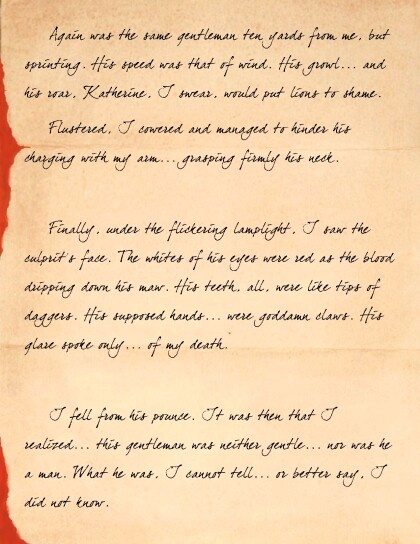 Again was the same gentleman ten yards from me, but
sprinting. His speed was that of wind. His growl... and
his roar, Katherine, I swear, would put lions to shame.
Flustered, I cowered and managed to hinder his
charging with my arm... grasping firmly his neck.
Finally, under the flickering lamplight, I saw the
culprit's face. The whites of his eyes were red as the blood
dripping down his maw. His teeth, all, were like tips of
daggers. His supposed hands... were goddamn claws. His
glare spoke only... of my death.
I fell from his pounce. It was then that I
realized... this gentleman was neither gentle... nor was he
a man. What he was, I cannot tell... or better say, I
did not know.